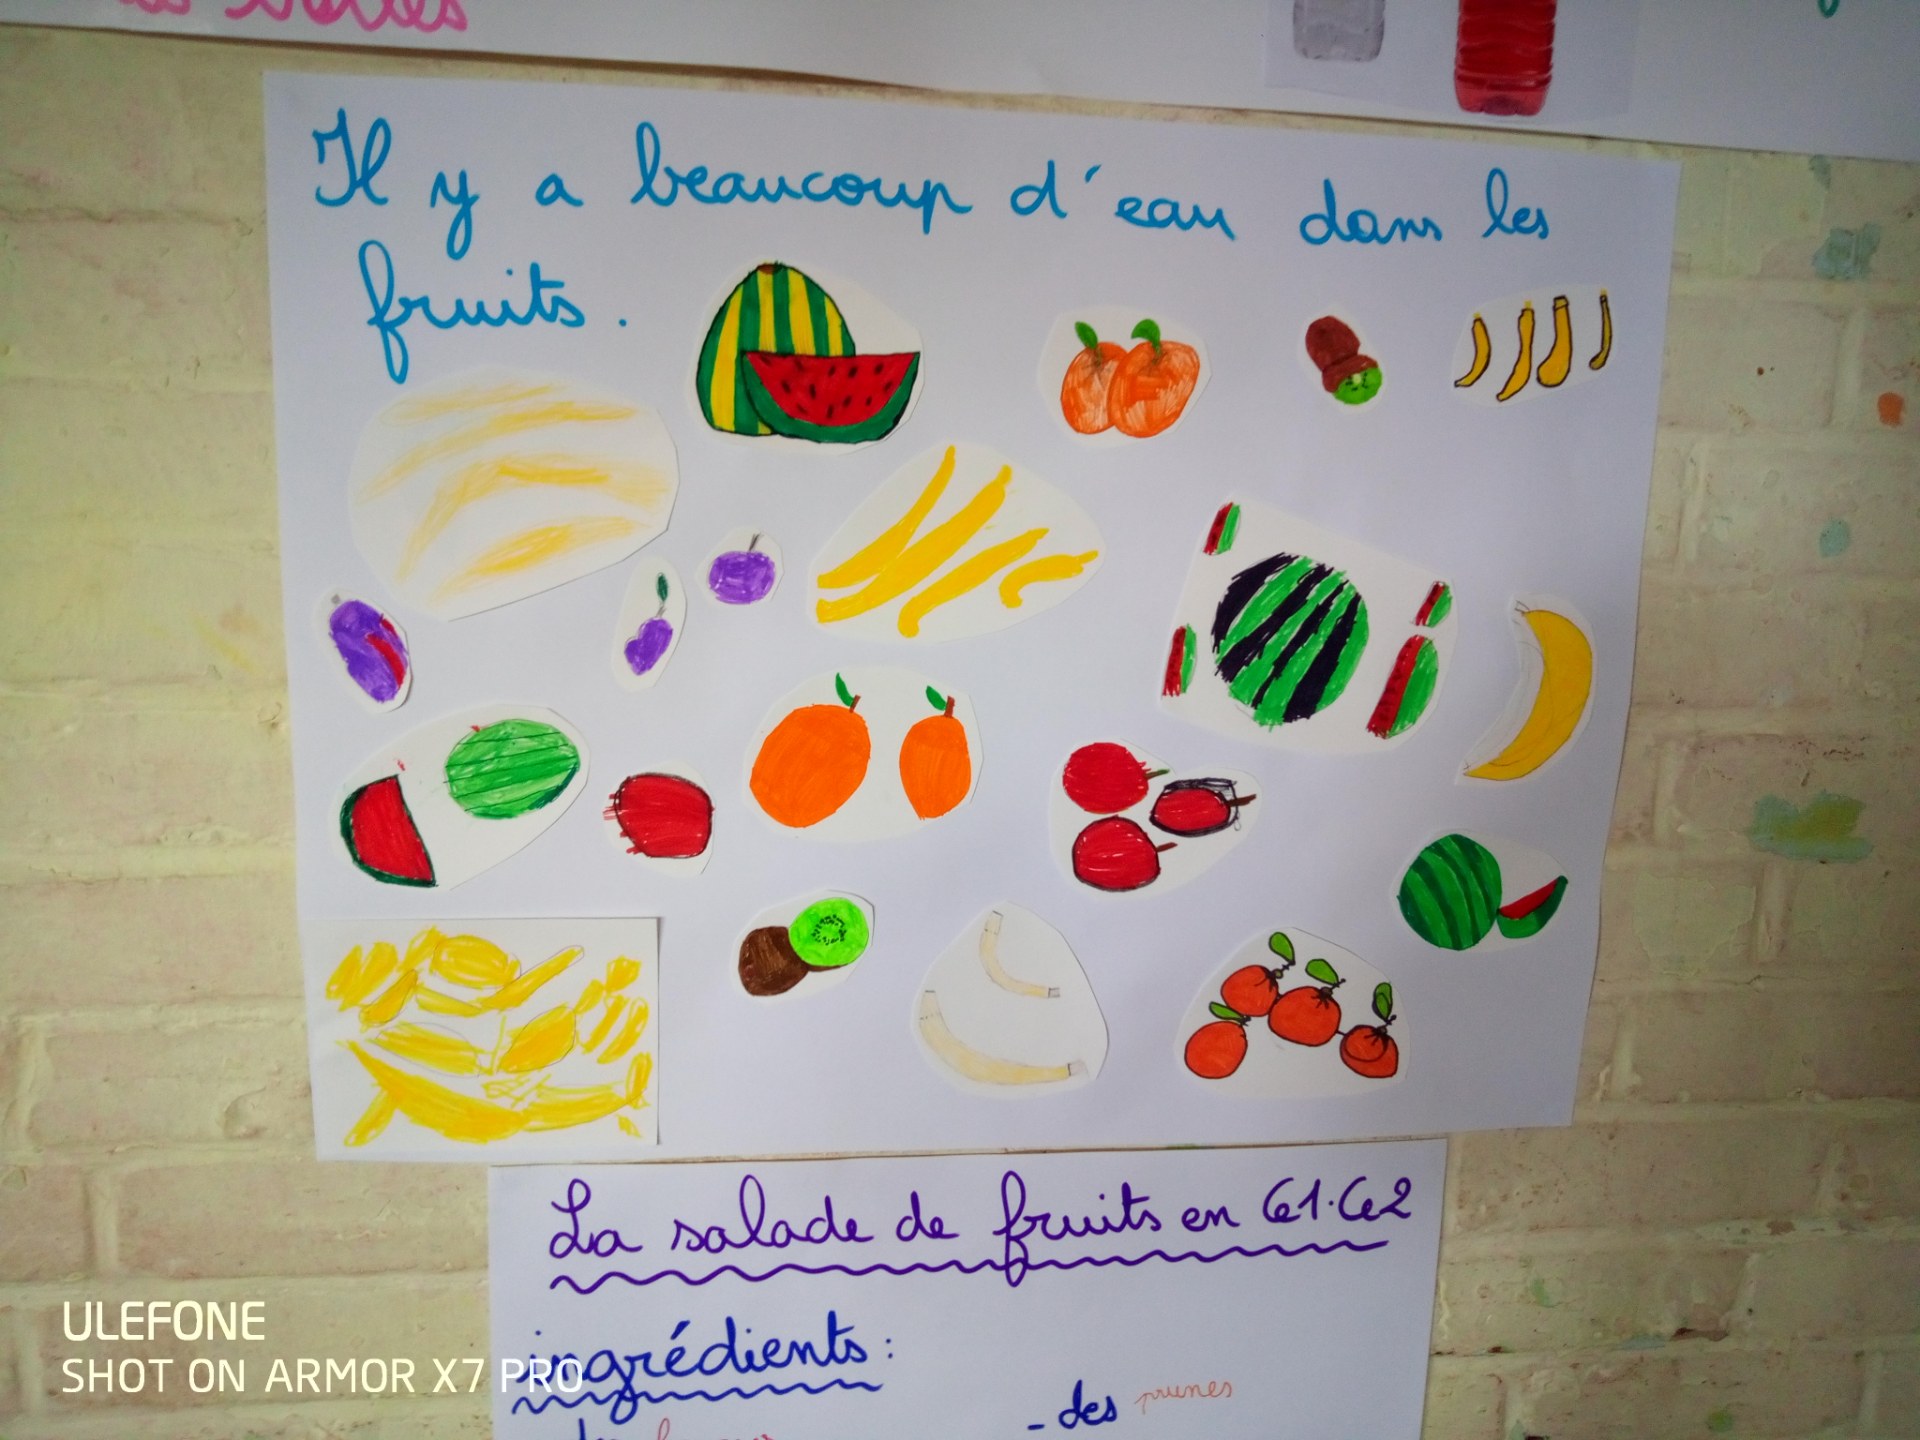 Il y a beaucoup d'eau dans les
fruits.
La salade de fruits en Ce1.Ce2
ingrédients :
- des prunes
ULEFONE
SHOT ON ARMOR X7 PRO